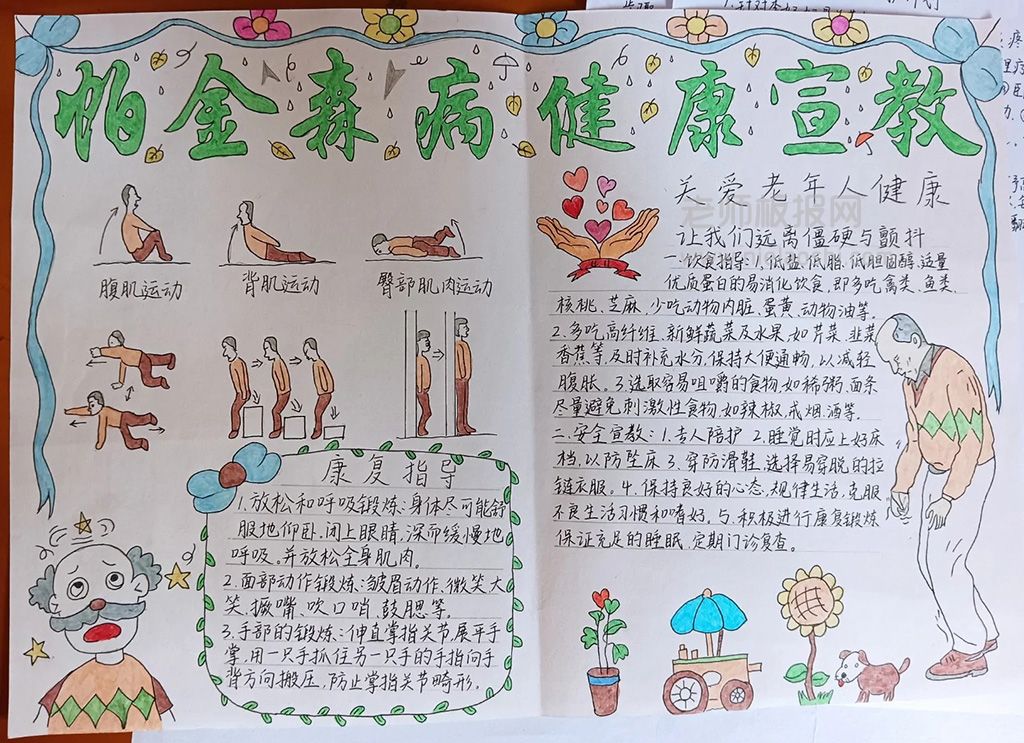 帕金森病健康宣教
关爱老年人健康
老师板报网
让我们远离僵硬与颤抖
一.饮食指导:1.低盐.低脂.低胆固醇.适量
优质蛋白的易消化饮食.即多吃禽类.鱼类.
核桃.芝麻.少吃动物内脏.蛋黄.动物油等.
2.多吃高纤维.新鲜蔬菜及水果,如芹菜.韭菜
香蕉等,及时补充水分,保持大便通畅,以减轻
腹胀。3.选取容易咀嚼的食物.如稀粥.面条
尽量避免刺激性食物.如辣椒,戒烟.酒等.
二.安全宣教:1.专人陪护 2.睡觉时应上好床
档,以防坠床 3.穿防滑鞋,选择易穿脱的拉
链衣服。4.保持良好的心态,规律生活,克服
不良生活习惯和嗜好。与.积极进行康复锻炼
保证充足的睡眠,定期门诊复查。
腹肌运动
背肌运动
臀部肌肉运动
康复指导
1.放松和呼吸锻炼:身体尽可能舒
服地仰卧.闭上眼睛,深而缓慢地
呼吸。并放松全身肌肉.
2.面部动作锻炼:皱眉动作、微笑、大
笑、撅嘴、吹口哨、鼓腮等。
3.手部的锻炼:伸直掌指关节,展平手
掌,用一只手抓住另一只手的手指向手
背方向搬压,防止掌指关节畸形。